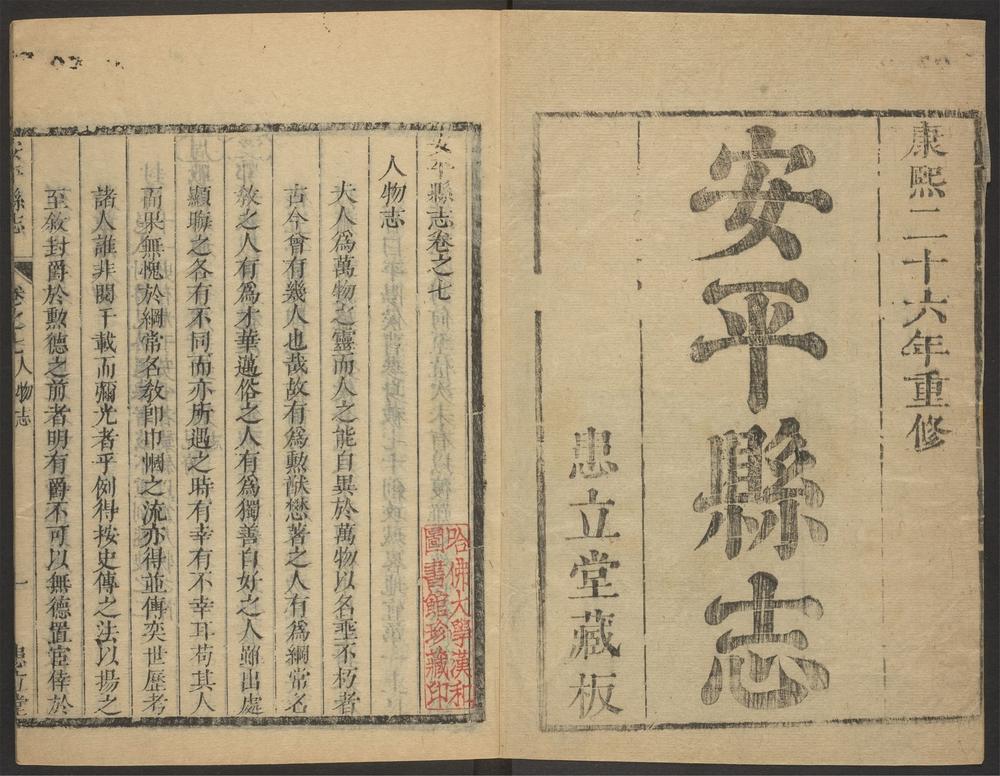 康熙二十六年重修
安平縣志
忠立堂藏板
安平縣志卷之七
人物志
夫人爲萬物之靈而人之能自異於萬物以名垂不朽者
古今曾有幾人也哉故有爲勲猷懋著之人有爲綱常名
敎之人有爲才華邁俗之人有爲獨善自好之人雖出處
顯晦之各有不同而亦所遇之時有幸有不幸耳苟其人
而果無愧於綱常名敎卽巾幗之流亦得並傳奕世歷考
諸人誰非閱千載而彌光者乎例得按史傳之法以揚之
至敘封爵於勲德之前者明有爵不可以無德置宦倖於
安平縣志
卷之七人物志
一
忠立堂
哈佛大學漢和
圖書館珍藏印